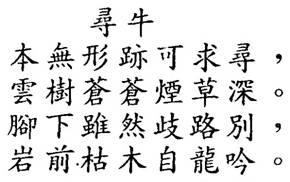 尋牛
本無形跡可求尋，
雲樹蒼蒼煙草深。
腳下雖然歧路別，
岩前枯木自龍吟。